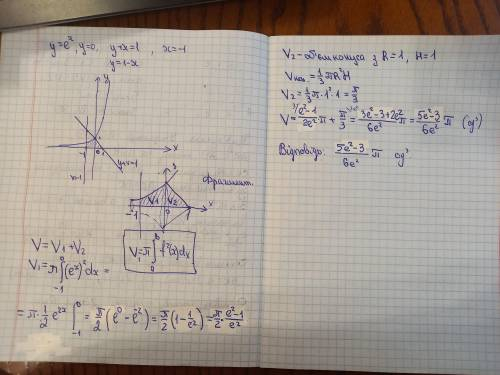 y=eˣ, y=0, y+x=1, x=-1
y=1-x
y
x
-1
0
x=-1
y+x=1
фрагмент
y
V₁
V₂
-1
0
1
x
V=V₁+V₂
V₁=π∫₋₁⁰(eˣ)²dx=
V₁=π∫ₐᵇf²(x)dx
=π·1/2 e²ˣ|₋₁⁰=π/2(e⁰-e⁻²)=π/2(1-1/e²)=π/2·(e²-1)/e²
V₂-об'єм конуса з R=1, H=1
Vкон.=1/3πR²H
V₂=1/3π·1²·1=π/3
V=(e²-1)/2e²·π+π/3=(3e²-3+2e²)/6e² π=(5e²-3)/6e² π (од³)
Відповідь: (5e²-3)/6e² π од³